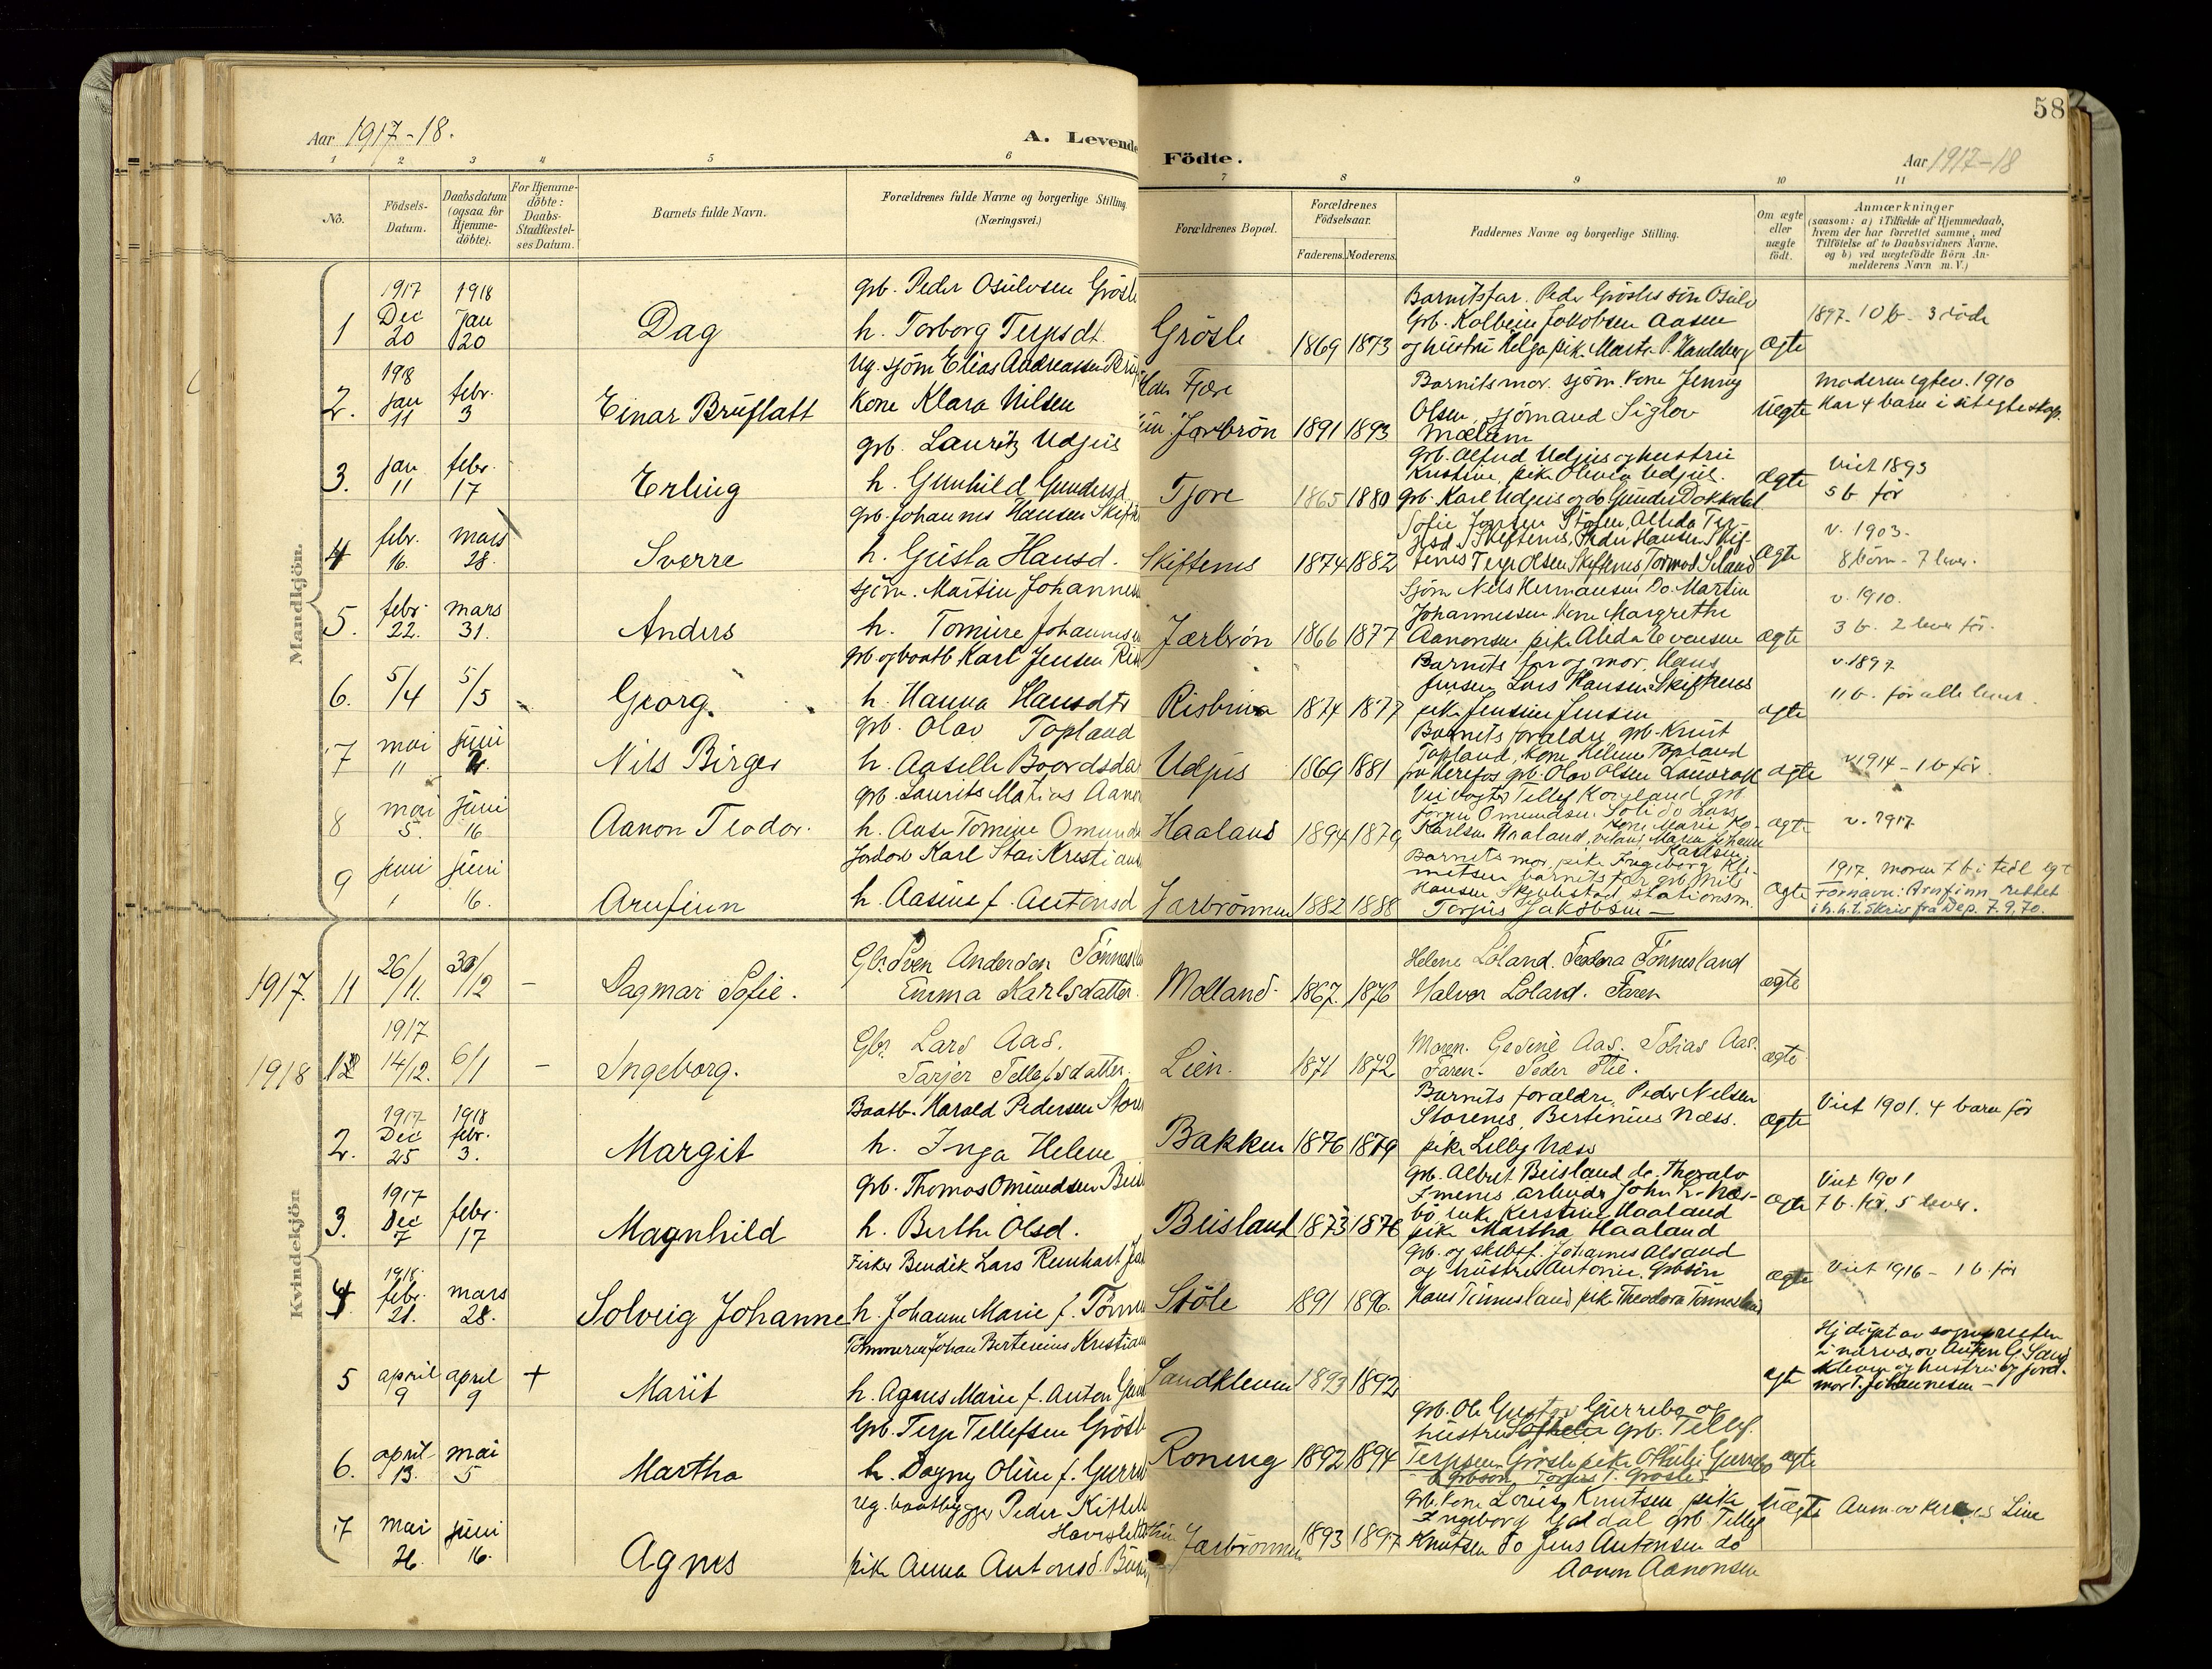 58
Aar 1917-18.
A. Levende
Födte.
Aar 1917-18
1 2 3 4 5 6 7 8 9 10 11
No.
Födsels-
Datum.
Daabsdatum
(ogsaa for
Hjemme-
döbte).
For Hjemme-
döbte:
Daabs-
Stadfæstel-
ses Datum.
Barnets fulde Navn.
Forældrenes fulde Navne og borgerlige Stilling
(Næringsvei.)
Forældrenes Bopæl.
Forældrenes
Födselsaar.
Faderens. Moderens.
Faddernes Navne og borgerlige Stilling.
Om ægte
eller
uægte
födt.
Anmærkninger
(saasom: a) i Tilfælde af Hjemmedaab,
hvem der har forrettet samme, med
Tilföielse af to Daabsvidners Navne,
og b) ved uægtefödte Börn An-
melderens Navn m. V.)
Mandkjön.
1
1917
Dec
20
1918
Jan
20
Dag
grb. Peder Osulvsen Grösle
h. Torborg Terpsdt.
Grösle
1869 1873
Barnets far. Peder Gröslis sön Osulv
Grb. Kolbein Jakobsen Aasen
og hustru Helga pik. Marta P.
ægte
1897. 10 b - 3 döde
2.
1918
jan
11
febr.
3
Einar Bruflatt
Ug. sjöm Elias Andreassen
kone Klara Nilsen
Fjære
Jærbrön
1891 1893
Barnets mor. sjöm. kone Jenny
Olsen, sjömand Siglov
Mælum
uegte
Moderen egtev. 1910
Har 4 barn i sit egteskap.
3.
jan
11
febr.
17
Erling
grb. Lauritz Udjus
h. Gunhild Gundersd.
Tjore
1865 1880
grb. Alfred Udjus og hustru
Kristine, pike Olevia Udjus.
grb. Karl Udjus og do Gunder Dokkedal
ægte
Viet 1893
5 b för
4
febr.
16.
mars
28.
Sverre
grb. Johannes Hansen Skift
h. Gusta Hansd.
Skiftenes
1874 1882
Sofie Jensen Stölen, Alleda Ter-
jesd. Skiftenes, Peder Hansen Skif-
tenes Terje Olsen Skiftenes, Tormod Seland
ægte
v. 1903.
8 börn - 7 lever.
5.
febr.
22.
mars
31.
Anders
sjöm. Martin Johannes
h. Tomine Johannes
Jærbrön
1866 1877
Sjöm Nils Hermansen Do. Martin
Johannessen kone Margrethe
Aanonsen pike Aleda Evensen
ægte
v. 1910.
3 b. 2 lever för.
6.
5/4
5/5
Georg.
grb og baatb Karl Jensen Ris
h. Hanna Hansdtr
1874 1877
Barnets far og mor. Hans
Jensen, Lars Hansen Skiftenes
pike Jensine Jensen
ægte
v. 1897
11 b. för alle lever.
7
mai
11
juni
2.
Nils Birger
grb. Olav Topland
h. Aaselle Boordsda
Udjus
1869 1881
Barnets foraldre grb. Knut
Topland, kone Helene Topland
fra Herefos grb. Olav Olsen
ægte
v 1914 - 1 b för.
8
mai
5.
juni
16
Aanon Teodor.
grb. Laurits Matias Aanon
h. Aase Tomine Omunds
Haaland
1894 1879
Veivogter Tellef Kongeland grb
Jörgen Omundsen, Lars
Karlsen Haaland,
Karlsen
ægte
v. 1917
9
juni
1
juni
16.
Arnfinn
Karl Stai Kristians
h. Aasine f. Antonsd
Jærbrönnen
1882 1888
Barnets mor, pike Ingeborg Kle-
metsen barnets far grb Nils
Hansen stationsm.
Torjus Jakobsen —
Ægte
1917. moren 7 b i tedl egt
Fornavn: Arnfinn rettet
i h.h.t. Skriv fra Dep. 7.9.70.
Kvindekjön
1917. 11
26/11.
30/12
—
Dagmar Sofie.
Gbr. Sven Andersen Tönnesla
Emma Karlsdatter.
Molland.
1867. 1876
Helene Löland. Teodora Tönnesland
Halvor Löland. Faren
ægte
1918 12
1917
14/12.
6/1
—
Ingeborg.
Gbr. Lars Aas.
Tarjer Tellefsdatter.
Lien.
1871 1872
Moren. Gesine Aas. Tobias Aas.
Faren. Peder Flie.
ægte
2.
1917
Dec
25
1918
febr.
3.
Margit
Baatb. Harald Pedersen Stor
h. Inga Helene
Bakken
1876 1879
Barnets foraldre. Peder Nelsen
Storenes, Bertinius Næss.
pike Lilly Næss
ægte
Viet 1901. 4 barn för
3.
1917
Dec
7
febr.
17
Magnhild
grb. Thomas Omundsen Beis
h. Berthe Olsd.
Beisland
1873 1876
grb. Albert Beisland do. Thoralv
Imenes, arbeider John K. Næs-
bö enke Kerstine Haaland
pike Martha Haaland
ægte
Viet 1901
7 b. för, 5 lever.
4
1918.
febr.
21.
mars
28.
Solveig Johanne
Fisker Bendik Lars Reinhart
h. Johanne Marie f. Tönne
Stöle
1891 1896.
grb. og skibsf. Johannes Alsand
og hustru Antonie, grbsön
Hans Tönnesland pike Theodora Tönnesland
ægte
Viet 1916 - 1 b för
5
april
9
april
9
+
Marit
Tömmerm Johan Bertinius Kristian
h. Agnes Marie f. Anton
Sandkleven
1893 1892
egte
Hj döpt av sogneprsten
i nærvær av Anton G. Sand
kleven og hustru og jord.
mor T. Johannesen —
6.
april
13.
mai
5
Martha
Grb. Terje Tellefsen Grösl
h. Dagny Oline f. Gurre
Roning
1892 1894
grb. Ole Gustav Gurrebo og
hustru grb. Tellef
Terjesen Grösle pike Othilie Gurrebo
grbsön Torjus T. Grösle
ægte
7
mai
26.
juni
16.
Agnes
ug. baatbygger Peder Kittels
pike Anna Antonsd.
Jærbrönnen
1893 1897
grb. kone Lovis Knutsen pike
Ingeborg Uldal grb Tellef
Knutsen do Jens Antonsen do
Aanon Aanonsen
Uægte
Anm. av